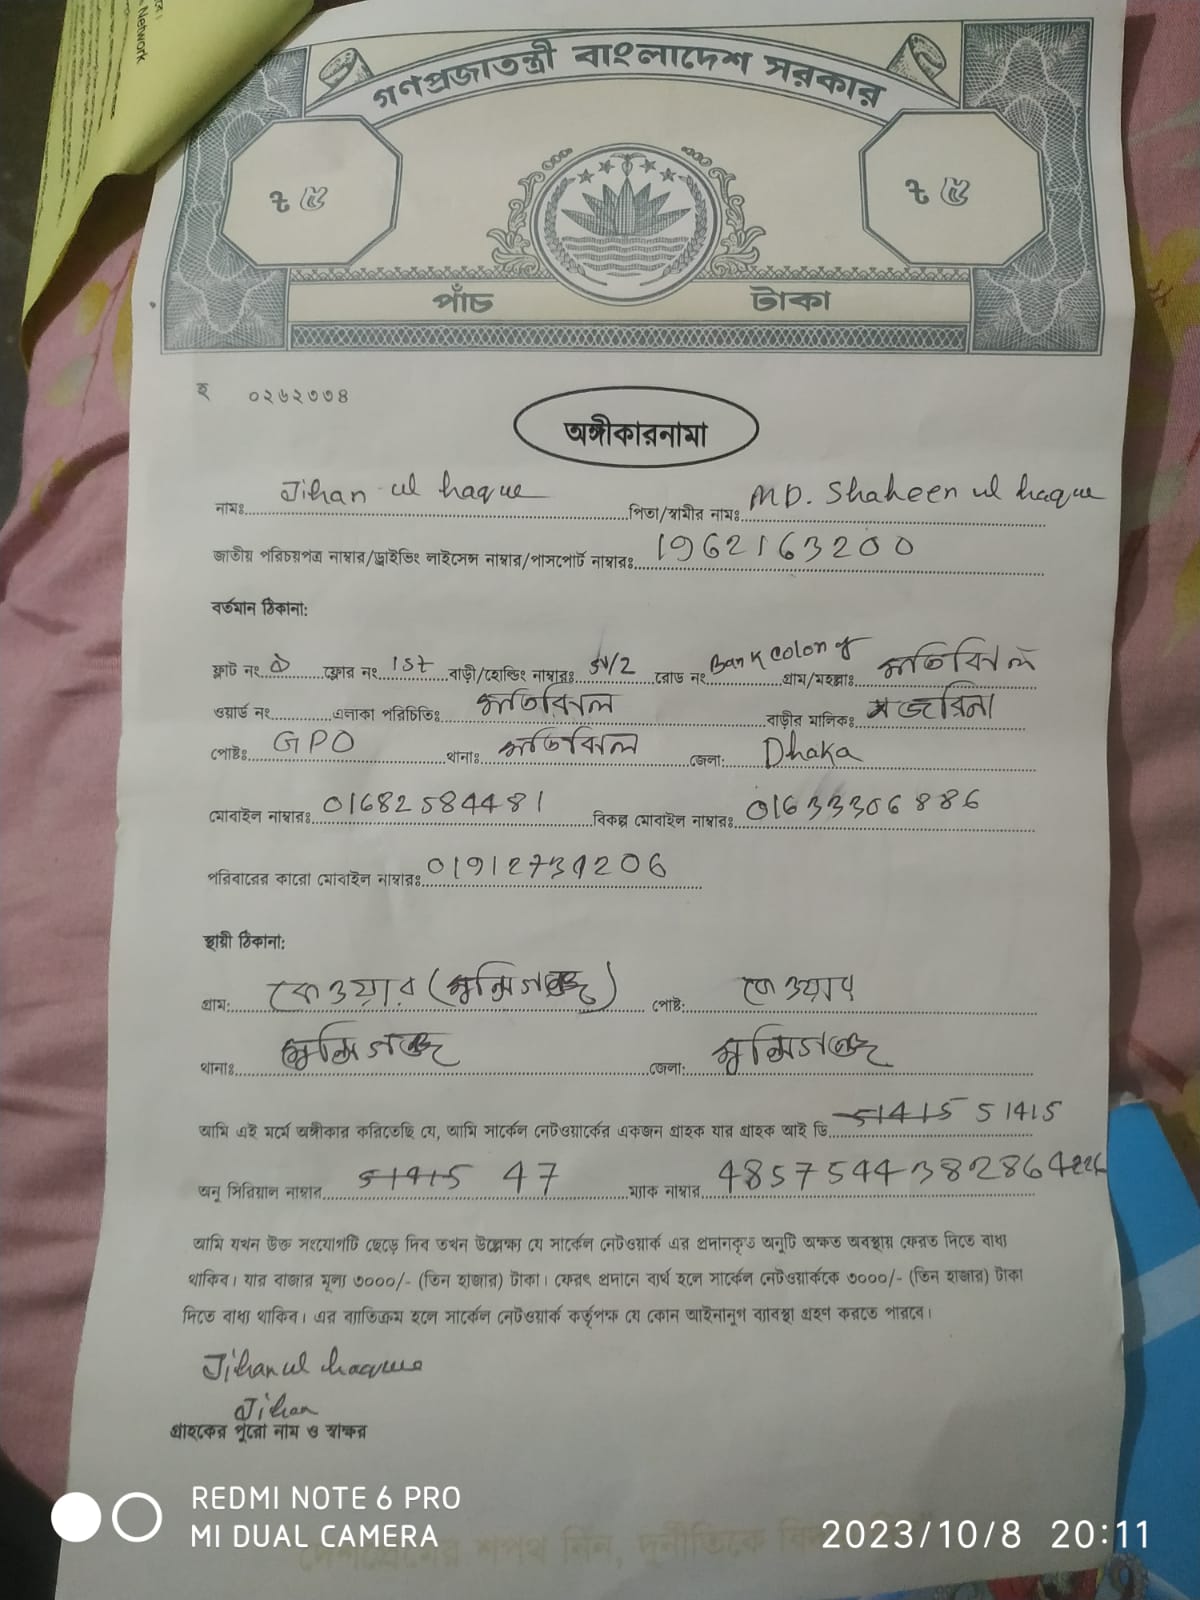 Network
গণপ্রজাতন্ত্রী বাংলাদেশ সরকার
৳ ৫ ৳ ৫
পাঁচ টাকা
হ ০২৬২৩৩৪
অঙ্গীকারনামা
নামঃ Jihan ul haque পিতা/স্বামীর নামঃ MD. Shaheen ul haque
জাতীয় পরিচয়পত্র নাম্বার/ড্রাইভিং লাইসেন্স নাম্বার/পাসপোর্ট নাম্বারঃ 1962163200
বর্তমান ঠিকানা:
ফ্লাট নং ফ্লোর নং 1st বাড়ী/হোল্ডিং নাম্বারঃ রোড নং Bank colony গ্রাম/মহল্লাঃ মতিঝিল
ওয়ার্ড নং এলাকা পরিচিতিঃ মতিঝিল বাড়ীর মালিকঃ
পোষ্টঃ GPO থানাঃ মতিঝিল জেলা: Dhaka
মোবাইল নাম্বারঃ 01682584481 বিকল্প মোবাইল নাম্বারঃ 01633306886
পরিবারের কারো মোবাইল নাম্বারঃ
স্থায়ী ঠিকানা:
গ্রাম: কেওয়ার (মুন্সিগঞ্জ) পোষ্ট: কেওয়ার
থানাঃ মুন্সিগঞ্জ জেলা: মুন্সিগঞ্জ
আমি এই মর্মে অঙ্গীকার করিতেছি যে, আমি সার্কেল নেটওয়ার্কের একজন গ্রাহক যার গ্রাহক আই ডি 51415 51415
অনু সিরিয়াল নাম্বার 51415 47 ম্যাক নাম্বার
আমি যখন উক্ত সংযোগটি ছেড়ে দিব তখন উল্লেক্ষ্য যে সার্কেল নেটওয়ার্ক এর প্রদানকৃত অনুটি অক্ষত অবস্থায় ফেরত দিতে বাধ্য
থাকিব। যার বাজার মূল্য ৩০০০/- (তিন হাজার) টাকা। ফেরৎ প্রদানে ব্যর্থ হলে সার্কেল নেটওয়ার্ককে ৩০০০/- (তিন হাজার) টাকা
দিতে বাধ্য থাকিব। এর ব্যাতিক্রম হলে সার্কেল নেটওয়ার্ক কর্তৃপক্ষ যে কোন আইনানুগ ব্যাবস্থা গ্রহণ করতে পারবে।
Jihan ul haque
Jihan
গ্রাহকের পুরো নাম ও স্বাক্ষর
REDMI NOTE 6 PRO
MI DUAL CAMERA
2023/10/8 20:11